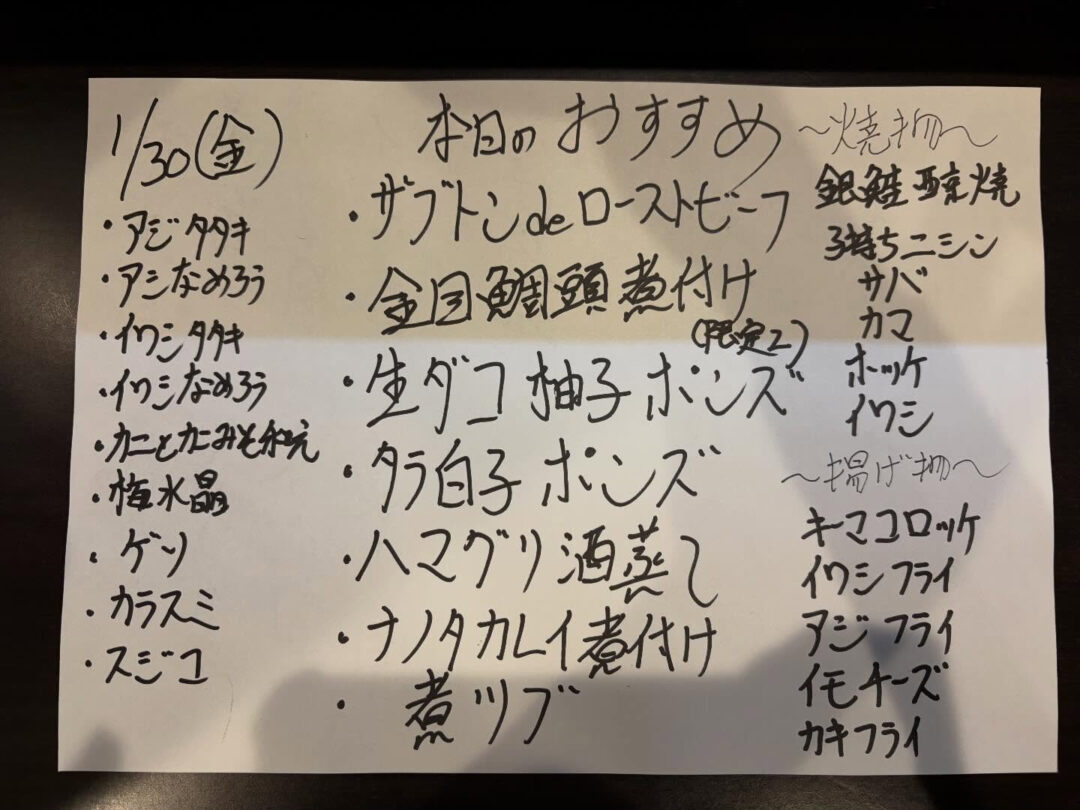 1/30(金)
・アジタタキ
・アジなめろう
・イワシタタキ
・イワシなめろう
・カニとカニみそ和え
・梅水晶
・ゲソ
・カラスミ
・スジコ
本日のおすすめ
・ザブトンdeローストビーフ
・金目鯛頭煮付け
(限定2)
・生ダコ 柚子 ポンズ
・タラ白子 ポンズ
・ハマグリ酒蒸し
・ナメタカレイ煮付け
・煮ツブ
〜焼き物〜
銀鮭西京焼
子持ちニシン
サバ
カマ
ホッケ
イワシ
〜揚げ物〜
キーマコロッケ
イワシフライ
アジフライ
イモチーズ
カキフライ